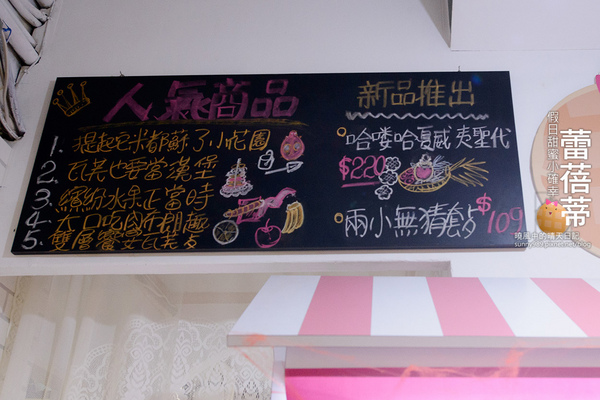 人氣商品
1. 提起它米都蘇了小花園
2. 瓦芙也要當漢堡
3. 繽紛水果正當時
4. 大口吃肉
5. 雙層饗宴瓦芙
新品推出
哈嘍哈夏威夷聖代
$220
兩小無猜套
$109
假日甜蜜小確幸
蕾蓓蒂